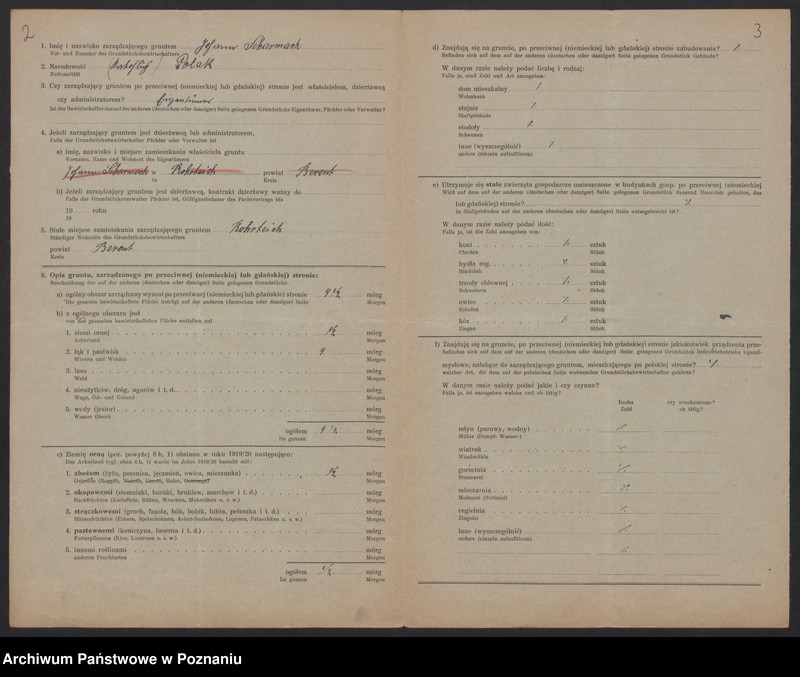 2
1. Imię i nazwisko zarządzającego gruntem Johann Scharmach
Vor- und Zuname des Grundstücksbewirtschafters
2. Narodowość (katholisch) Polak
Nationalität
3. Czy zarządzający gruntem po przeciwnej (niemieckiej lub gdańskiej) stronie jest właścicielem, dzierżawcą
czy administratorem? Eigentümer
Ist der Bewirtschafter des auf der anderen (deutschen oder danziger) Seite gelegenen Grundstücks Eigentümer, Pächter oder Verwalter?
4. Jeżeli zarządzający gruntem jest dzierżawcą lub administratorem,
Falls der Grundstücksbewirtschafter Pächter oder Verwalter ist
a) imię, nazwisko i miejsce zamieszkania właściciela gruntu
Vorname, Name und Wohnort des Eigentümers
Johann Scharmach w Rohrteich powiat Berent
in Kreis
b) Jeżeli zarządzający gruntem jest dzierżawcą, kontrakt dzierżawy ważny do
Falls der Grundstücksverwalter Pächter ist, Gültigkeitsdauer des Pachtvertrags bis
19 roku
19
5. Stałe miejsce zamieszkania zarządzającego gruntem Rohrteich
Ständiger Wohnsitz des Grundstücksbewirtschafters
powiat Berent
Kreis
6. Opis gruntu, zarządzanego po przeciwnej (niemieckiej lub gdańskiej) stronie:
Beschreibung des auf der anderen (deutschen oder danziger) Seite gelegenen Grundstücks:
a) ogólny obszar zarządzany wynosi po przeciwnej (niemieckiej lub gdańskiej) stronie 4 1/2 mórg
Die gesamte bewirtschaftete Fläche beträgt auf der anderen (deutschen oder danziger) Seite Morgen
b) z ogólnego obszaru jest
von der gesamten bewirtschafteten Fläche entfallen auf
1. ziemi ornej 1/2 mórg
Ackerland Morgen
2. łąk i pastwisk 4 mórg
Wiesen und Weiden Morgen
3. lasu mórg
Wald Morgen
4. nieużytków, dróg, ugorów i t. d. mórg
Wege, Öd- und Unland Morgen
5. wody (jezior) mórg
Wasser (Seen) Morgen
ogółem 4 1/2 mórg
Im ganzen Morgen
c) Ziemię orną (por. powyżej 6 b, 1) obsiano w roku 1919/20 następująco:
Das Ackerland (vgl. oben 6 b, 1) wurde im Jahre 1919/20 bestellt mit:
1. zbożem (żyto, pszenica, jęczmień, owies, mieszanka) 1/2 mórg
Getreide (Roggen, Weizen, Gerste, Hafer, Gemenge) Morgen
2. okopowemi (ziemniaki, buraki, brukiew, marchew i t. d.) mórg
Hackfrüchten (Kartoffeln, Rüben, Wrucken, Mohrrüben u. s. w.) Morgen
3. strączkowemi (groch, fasola, bób, bobik, łubin, peluszka i t. d.) mórg
Hülsenfrüchten (Erbsen, Speisebohnen, Acker-Saubohnen, Lupinen, Peluschken u. s. w.) Morgen
4. pastewnemi (koniczyna, lucerna i t. d.) mórg
Futterpflanzen (Klee, Luzernen u. s. w.) Morgen
5. innemi roślinami mórg
anderen Fruchtarten Morgen
ogółem 1/2 mórg
Im ganzen Morgen
3
d) Znajdują się na gruncie, po przeciwnej (niemieckiej lub gdańskiej) stronie zabudowania?
Befinden sich auf dem auf der anderen (deutschen oder danziger) Seite gelegenen Grundstück Gebäude?
W danym razie należy podać liczbę i rodzaj:
Falls ja, sind Zahl und Art anzugeben:
dom mieszkalny
Wohnhaus
stajnie
Stallgebäude
stodoły
Scheunen
inne (wyszczególnić)
andere (einzeln aufzuführen)
e) Utrzymuje się stale zwierzęta gospodarcze umieszczone w budynkach gosp. po przeciwnej (niemieckiej
Wird auf dem auf der anderen (deutschen oder danziger) Seite gelegenen Grundstück dauernd Hausvieh gehalten, das
lub gdańskiej) stronie?
in Stallgebäuden auf der anderen (deutschen oder danziger) Seite untergebracht ist?
W danym razie należy podać ilość:
Falls ja, ist die Zahl anzugeben von:
koni sztuk
Pferden Stück
bydła rog. sztuk
Rindvieh Stück
trzody chlewnej sztuk
Schweinen Stück
owiec sztuk
Schafen Stück
kóz sztuk
Ziegen Stück
f) Znajdują się na gruncie, po przeciwnej (niemieckiej lub gdańskiej) stronie jakiekolwiek urządzenia prze-
Befinden sich auf dem auf der anderen (deutschen oder danziger) Seite gelegenen Grundstück Industriebetriebe irgend-
mysłowe, należące do zarządzającego gruntem, mieszkającego po polskiej stronie?
welcher Art, die dem auf der polnischen Seite wohnenden Grundstücksbewirtschafter gehören?
W danym razie należy podać jakie i czy czynne?
Falls ja, ist anzugeben welche und ob tätig?
liczba czy uruchomione?
Zahl ob tätig?
młyn (parowy, wodny)
Mühle (Dampf- Wasser-)
wiatrak
Windmühle
gorzelnia
Brennerei
mleczarnia
Molkerei (Butterei)
cegielnia
Ziegelei
inne (wyszczególnić)
andere (einzeln aufzuführen)
Archiwum Państwowe w Poznaniu